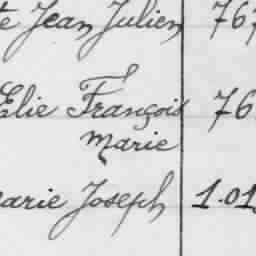 Jean Julien 767
Elie François 76
Marie
arie Joseph 1.01